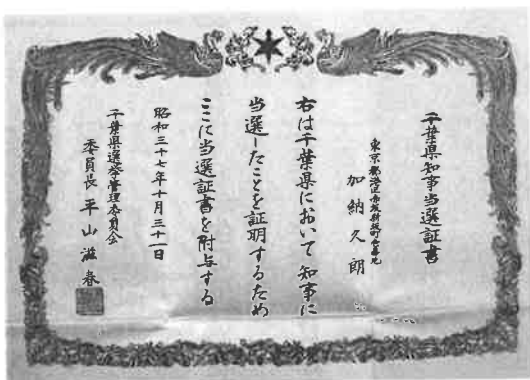 千葉県知事当選証書
東京都港区赤坂新坂町
加納久朗
右は千葉県において知事に
当選したことを証明するため
ここに当選証書を附与する
昭和三十七年十月三十一日
千葉県選挙管理委員会
委員長 平山滋春